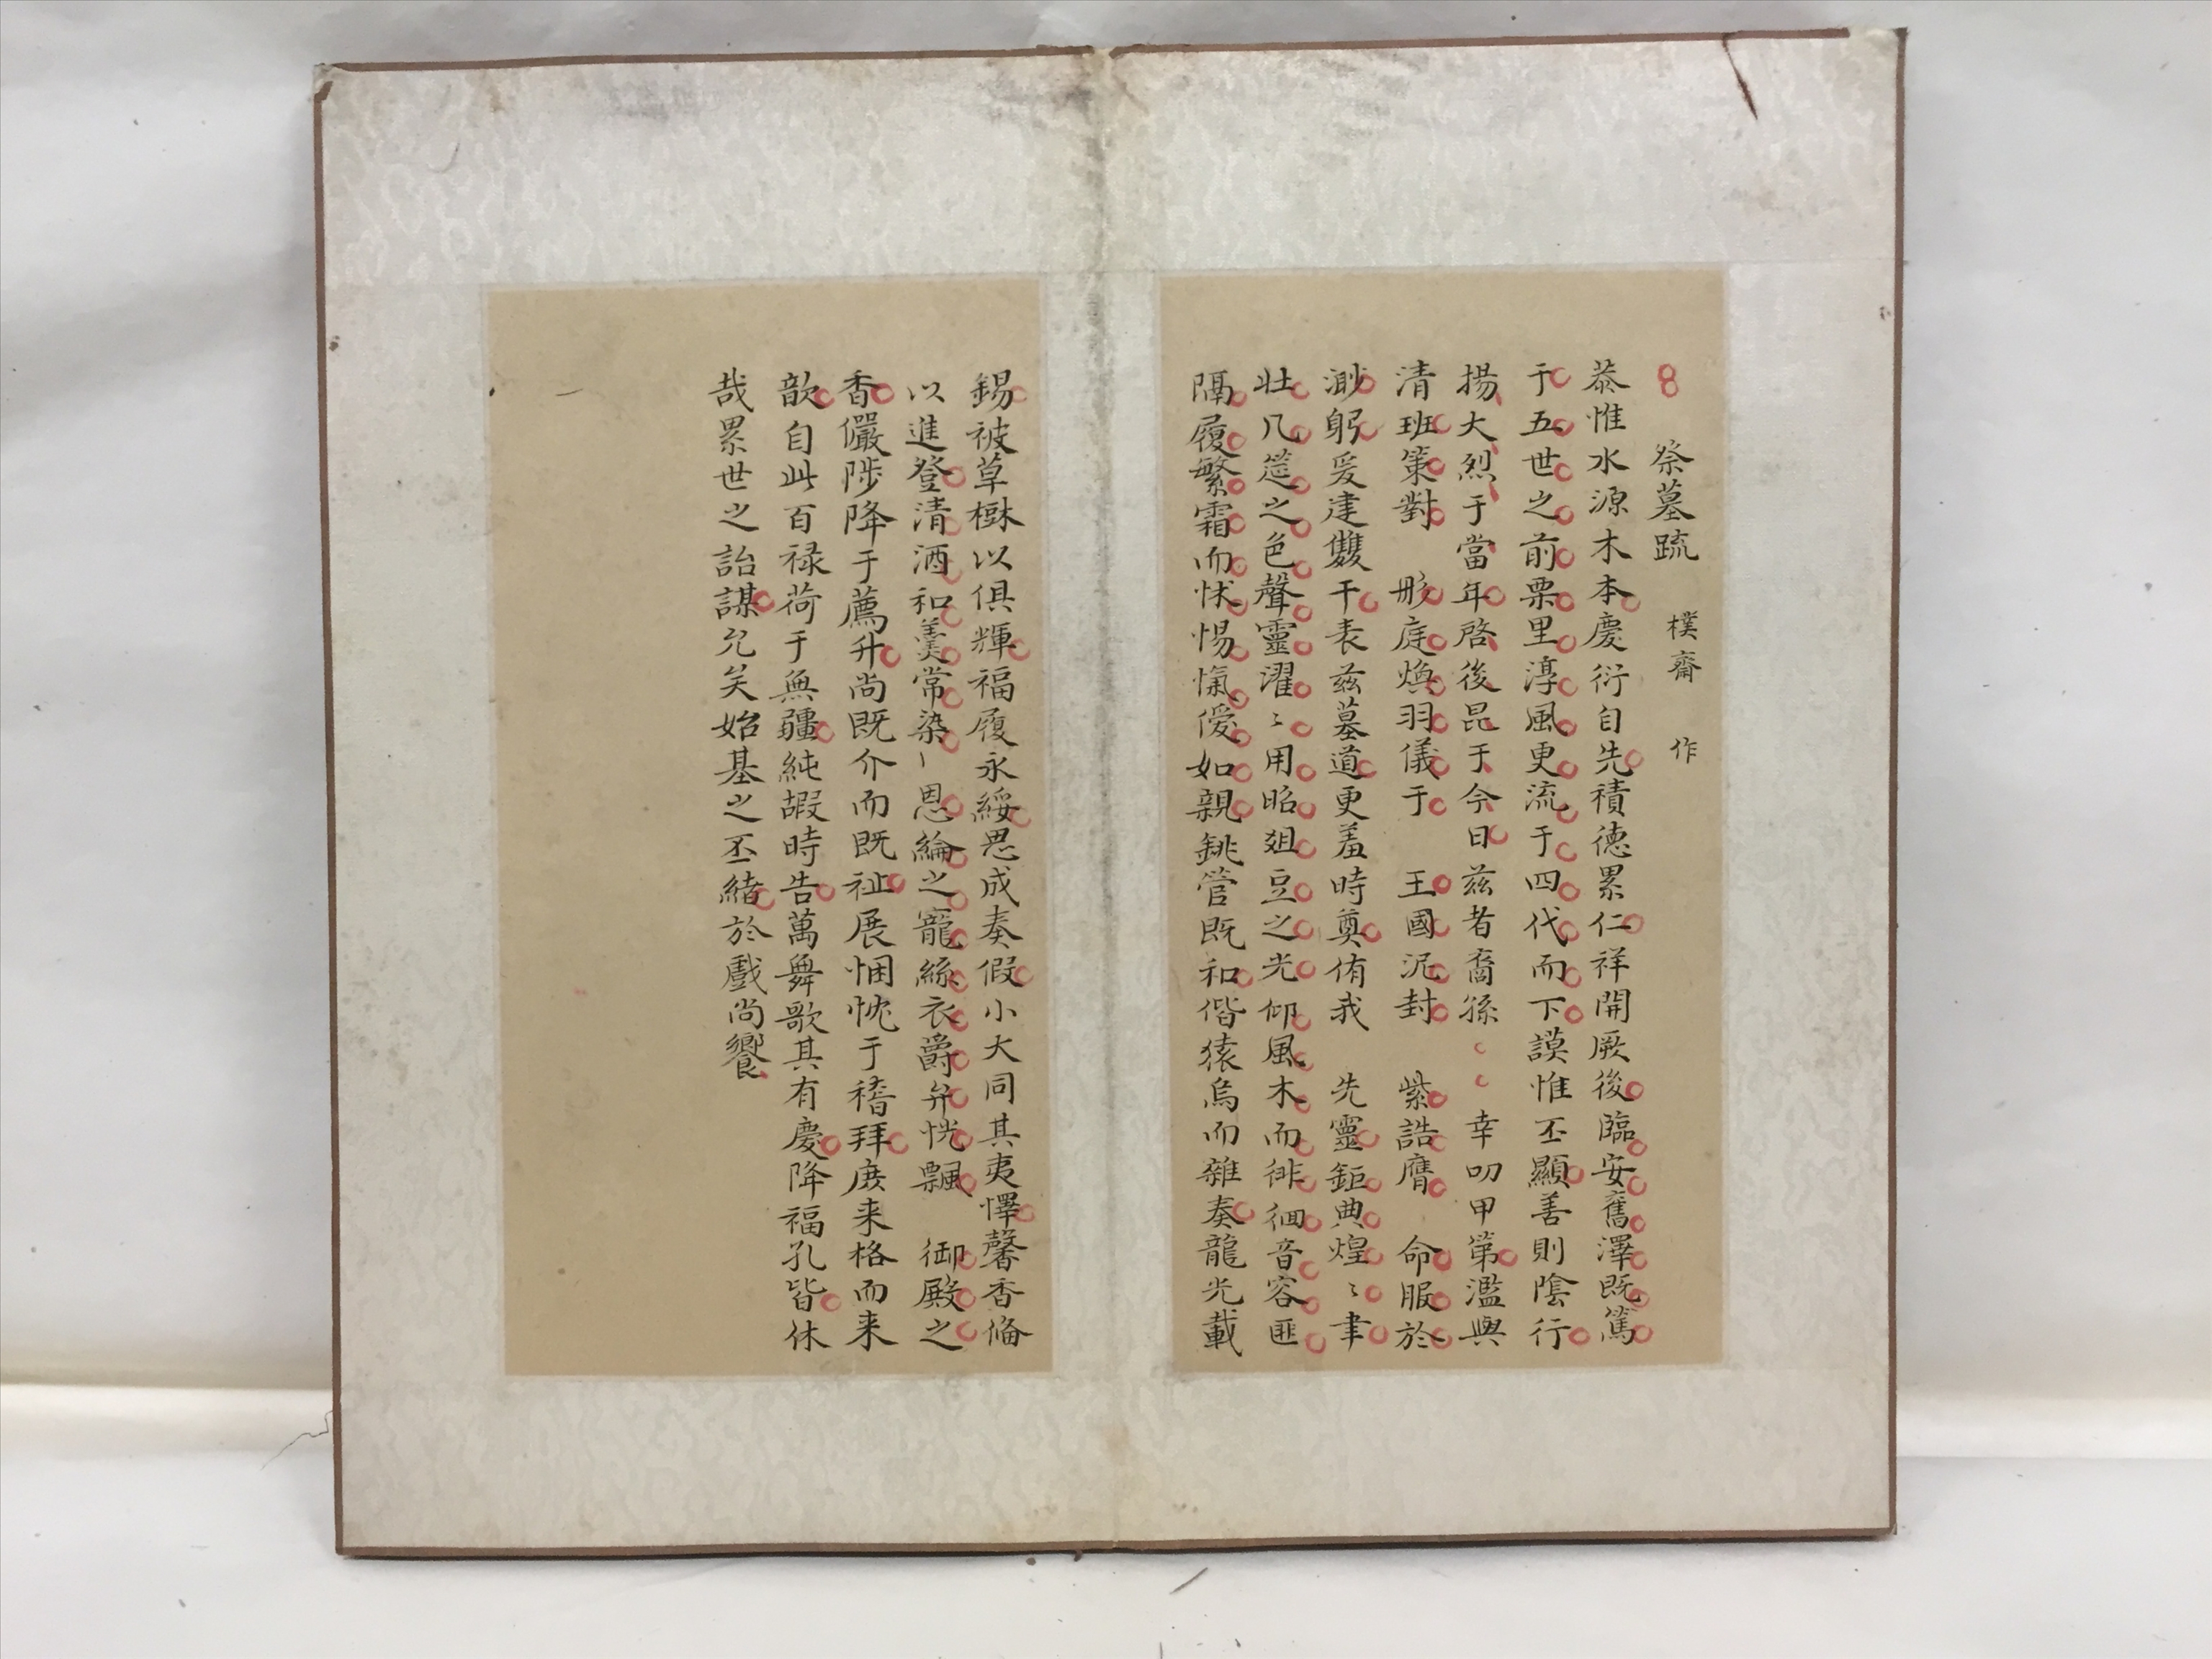 祭墓疏 樸齋 作
恭惟水源木本慶衍自先積德累仁祥開厥後臨安舊澤既篤
于五世之前栗里淳風更流于四代而下謨惟丕顯善則陰行
揚大烈于當年啓後昆于今日兹者裔孫 幸叨甲第濫與
清班策對 彤庭煥羽儀于 王國泥封 紫誥膺 命服於
渺躬爰建雙干表兹墓道更羞時奠侑我 先靈鉅典煌〻聿
壯几筵之色聲靈濯〻用昭俎豆之光仰風木而徘徊音容匪
隔履繁霜而怵惕愾僾如親銚管既和偕猿鳥而雜奏龍光載
錫被草樹以俱輝福履永綏思成奏假小大同其夷懌馨香偹
以進登清酒和羹常染 恩綸之寵絲衣爵弁恍飄 御殿之
香儼陟降于薦升尚既介而既祉展悃忱于稽拜庶来格而来
歆自此百禄荷于無疆純嘏時告萬舞歌其有慶降福孔皆休
哉累世之詒謀允矣始基之丕緒於戲尚饗